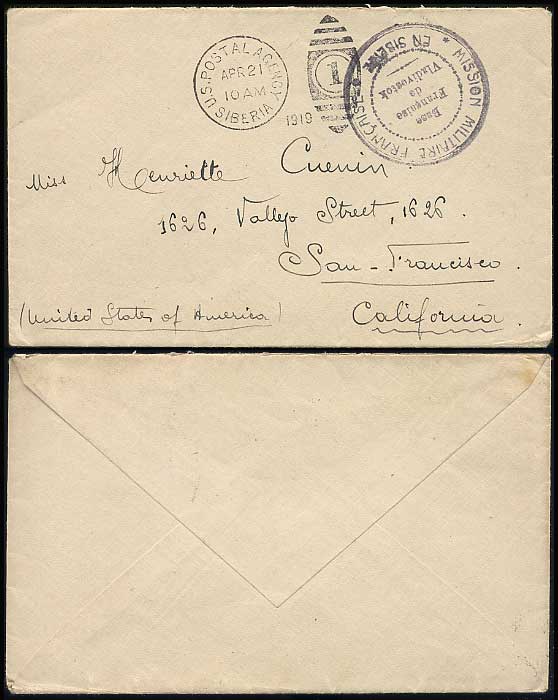 U.S. POSTAL AGENCY
APR 21
10 AM
SIBERIA
1919
1
* MISSION MILITAIRE FRANÇAISE *
EN SIBÉRIE
Base
Française
de
Vladivostok
Miss Henriette Cuenin
1626, Vallejo Street, 1626.
San-Francisco.
(United States of America) California.